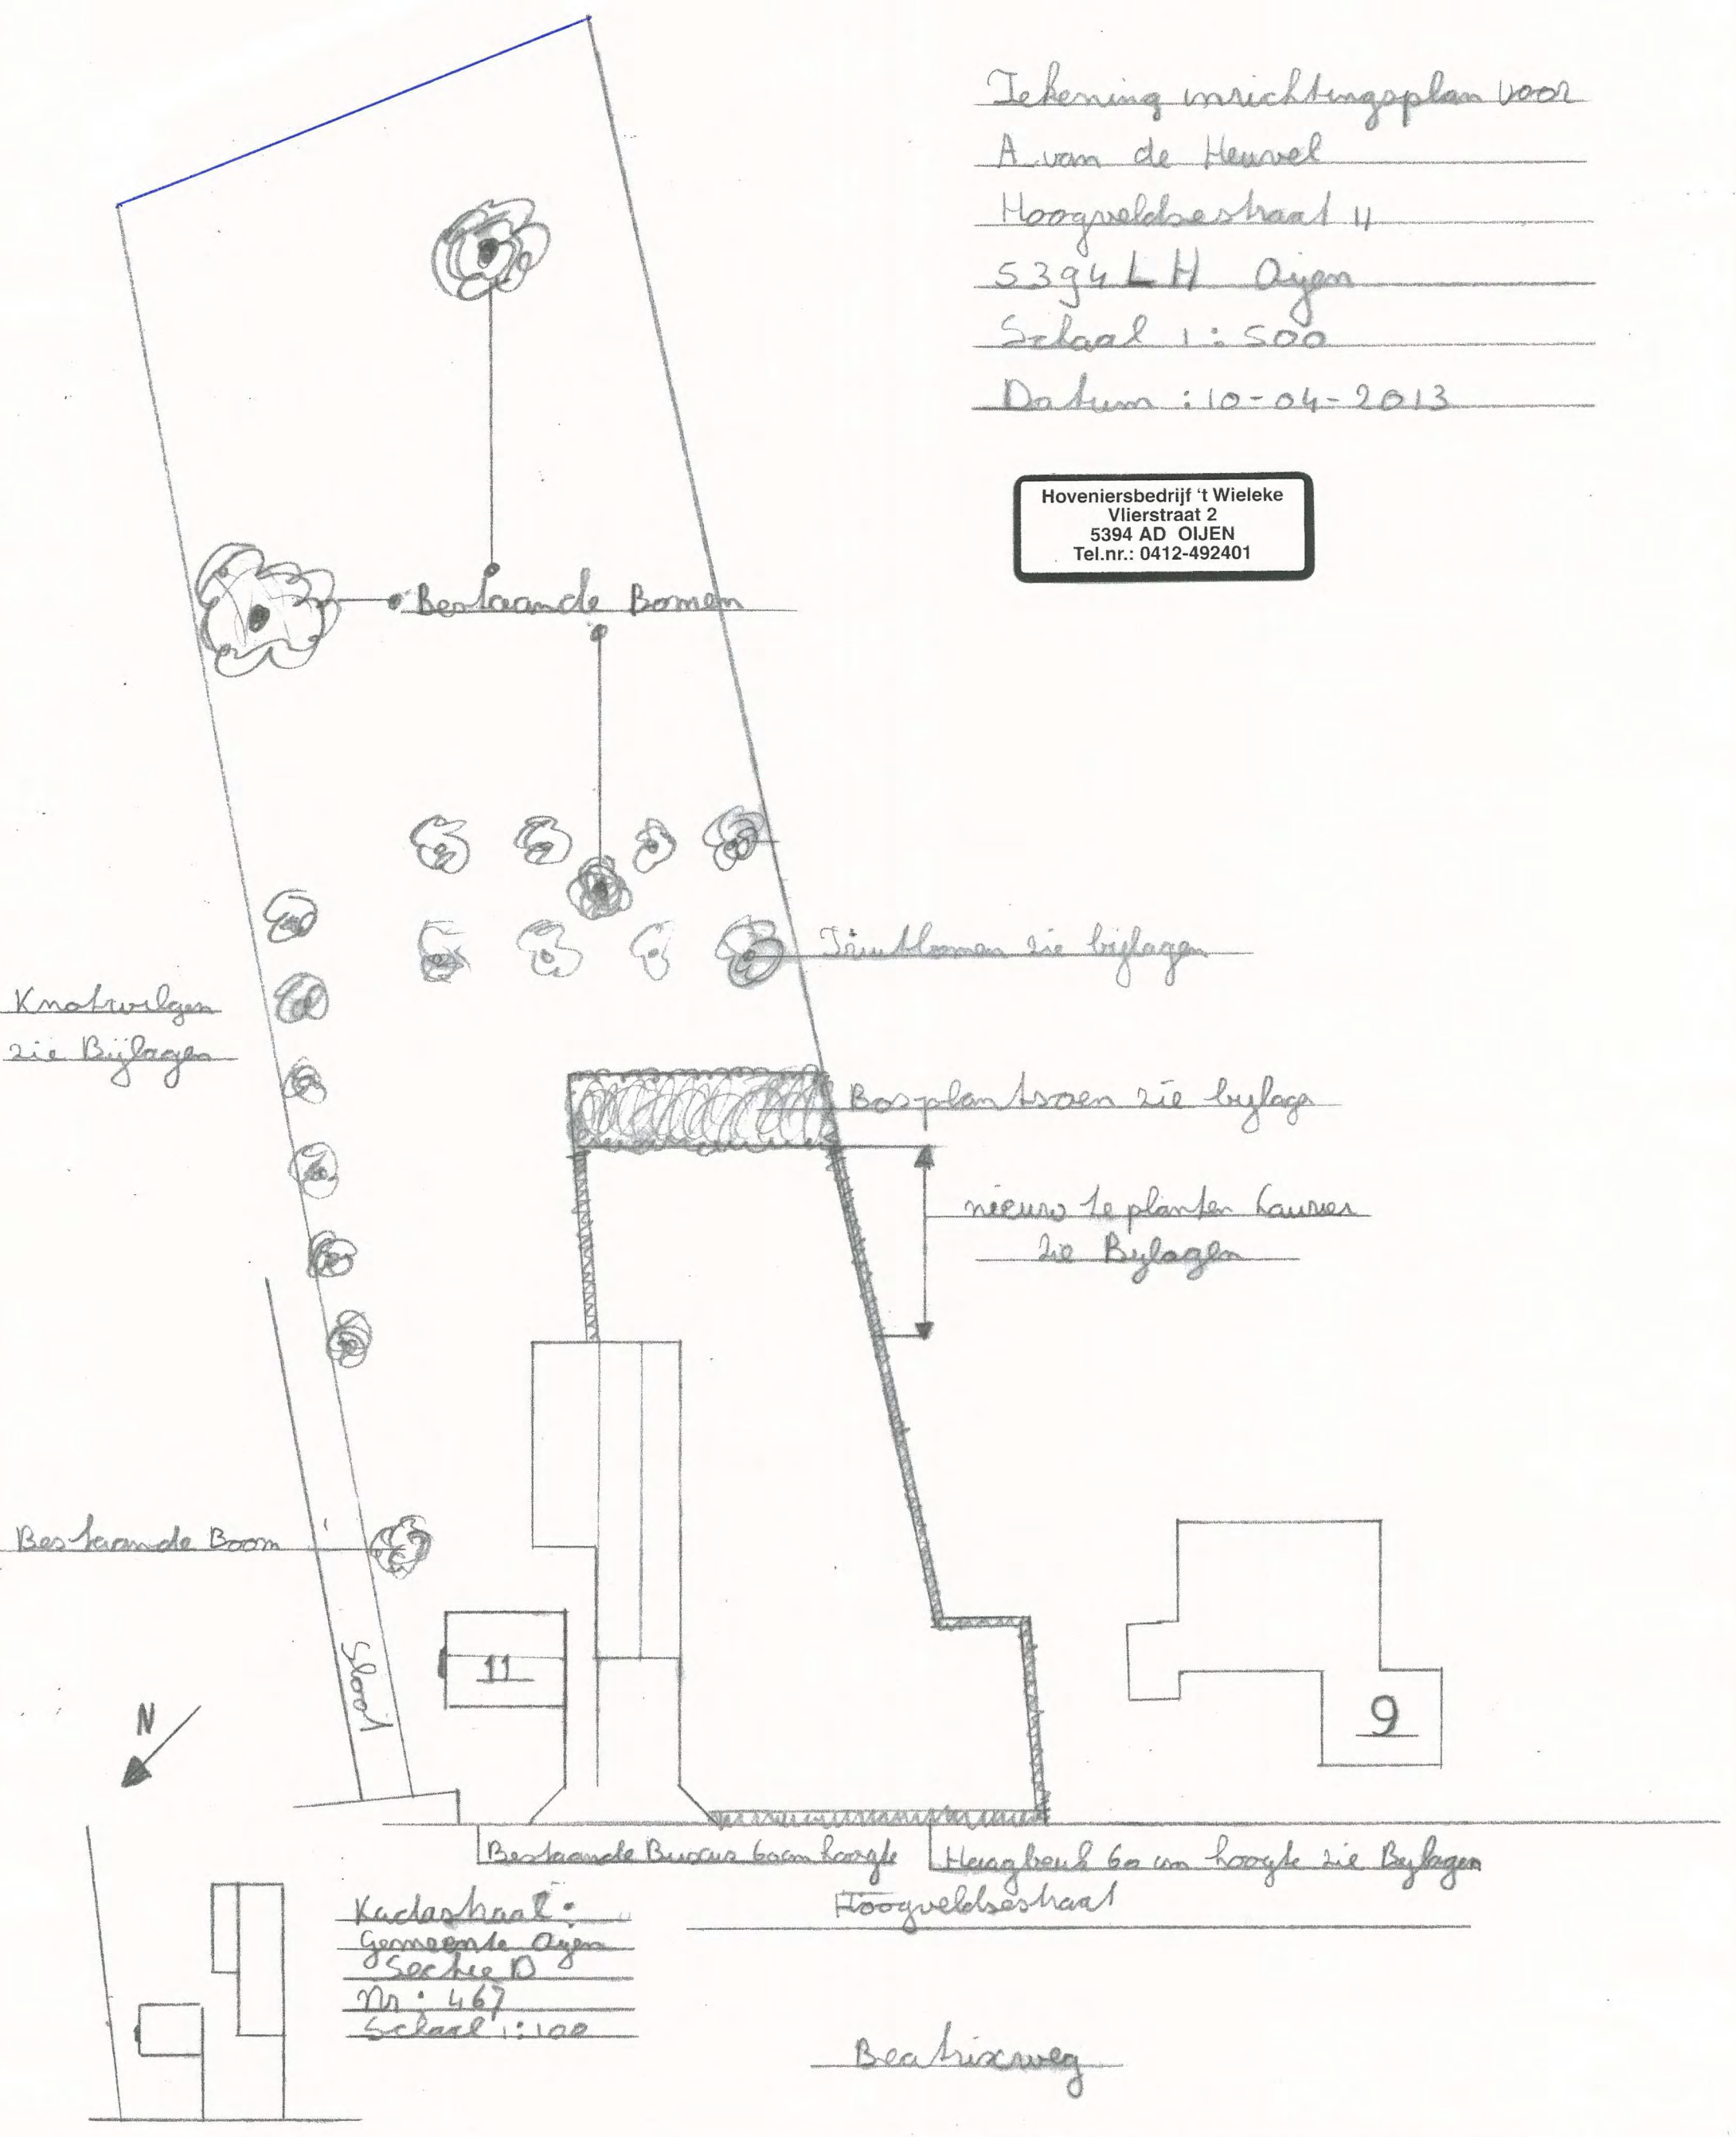 Tekening inrichtingsplan voor
A van de Heuvel
Hoogveldsestraat 11
5394 LH Oyen
Schaal 1:500
Datum : 10-04-2013
Hoveniersbedrijf 't Wieleke
Vlierstraat 2
5394 AD OIJEN
Tel.nr.: 0412-492401
Bestaande Bomen
Fruitbomen zie bijlagen
Knotwilgen
zie Bijlagen
Bosplantsoen zie bylage
nieuw te planten Laurier
zie Bylagen
Bestaande Boom
11
Sloot
9
N
Bestaande Buxus 60cm hoogte
Haagbeuk 60 cm hoogte zie Bylagen
Hoogveldsestraat
Kadastraal:
Gemeente Oyen
Sectie D
Nr: 467
Schaal 1:100
Beatrixweg